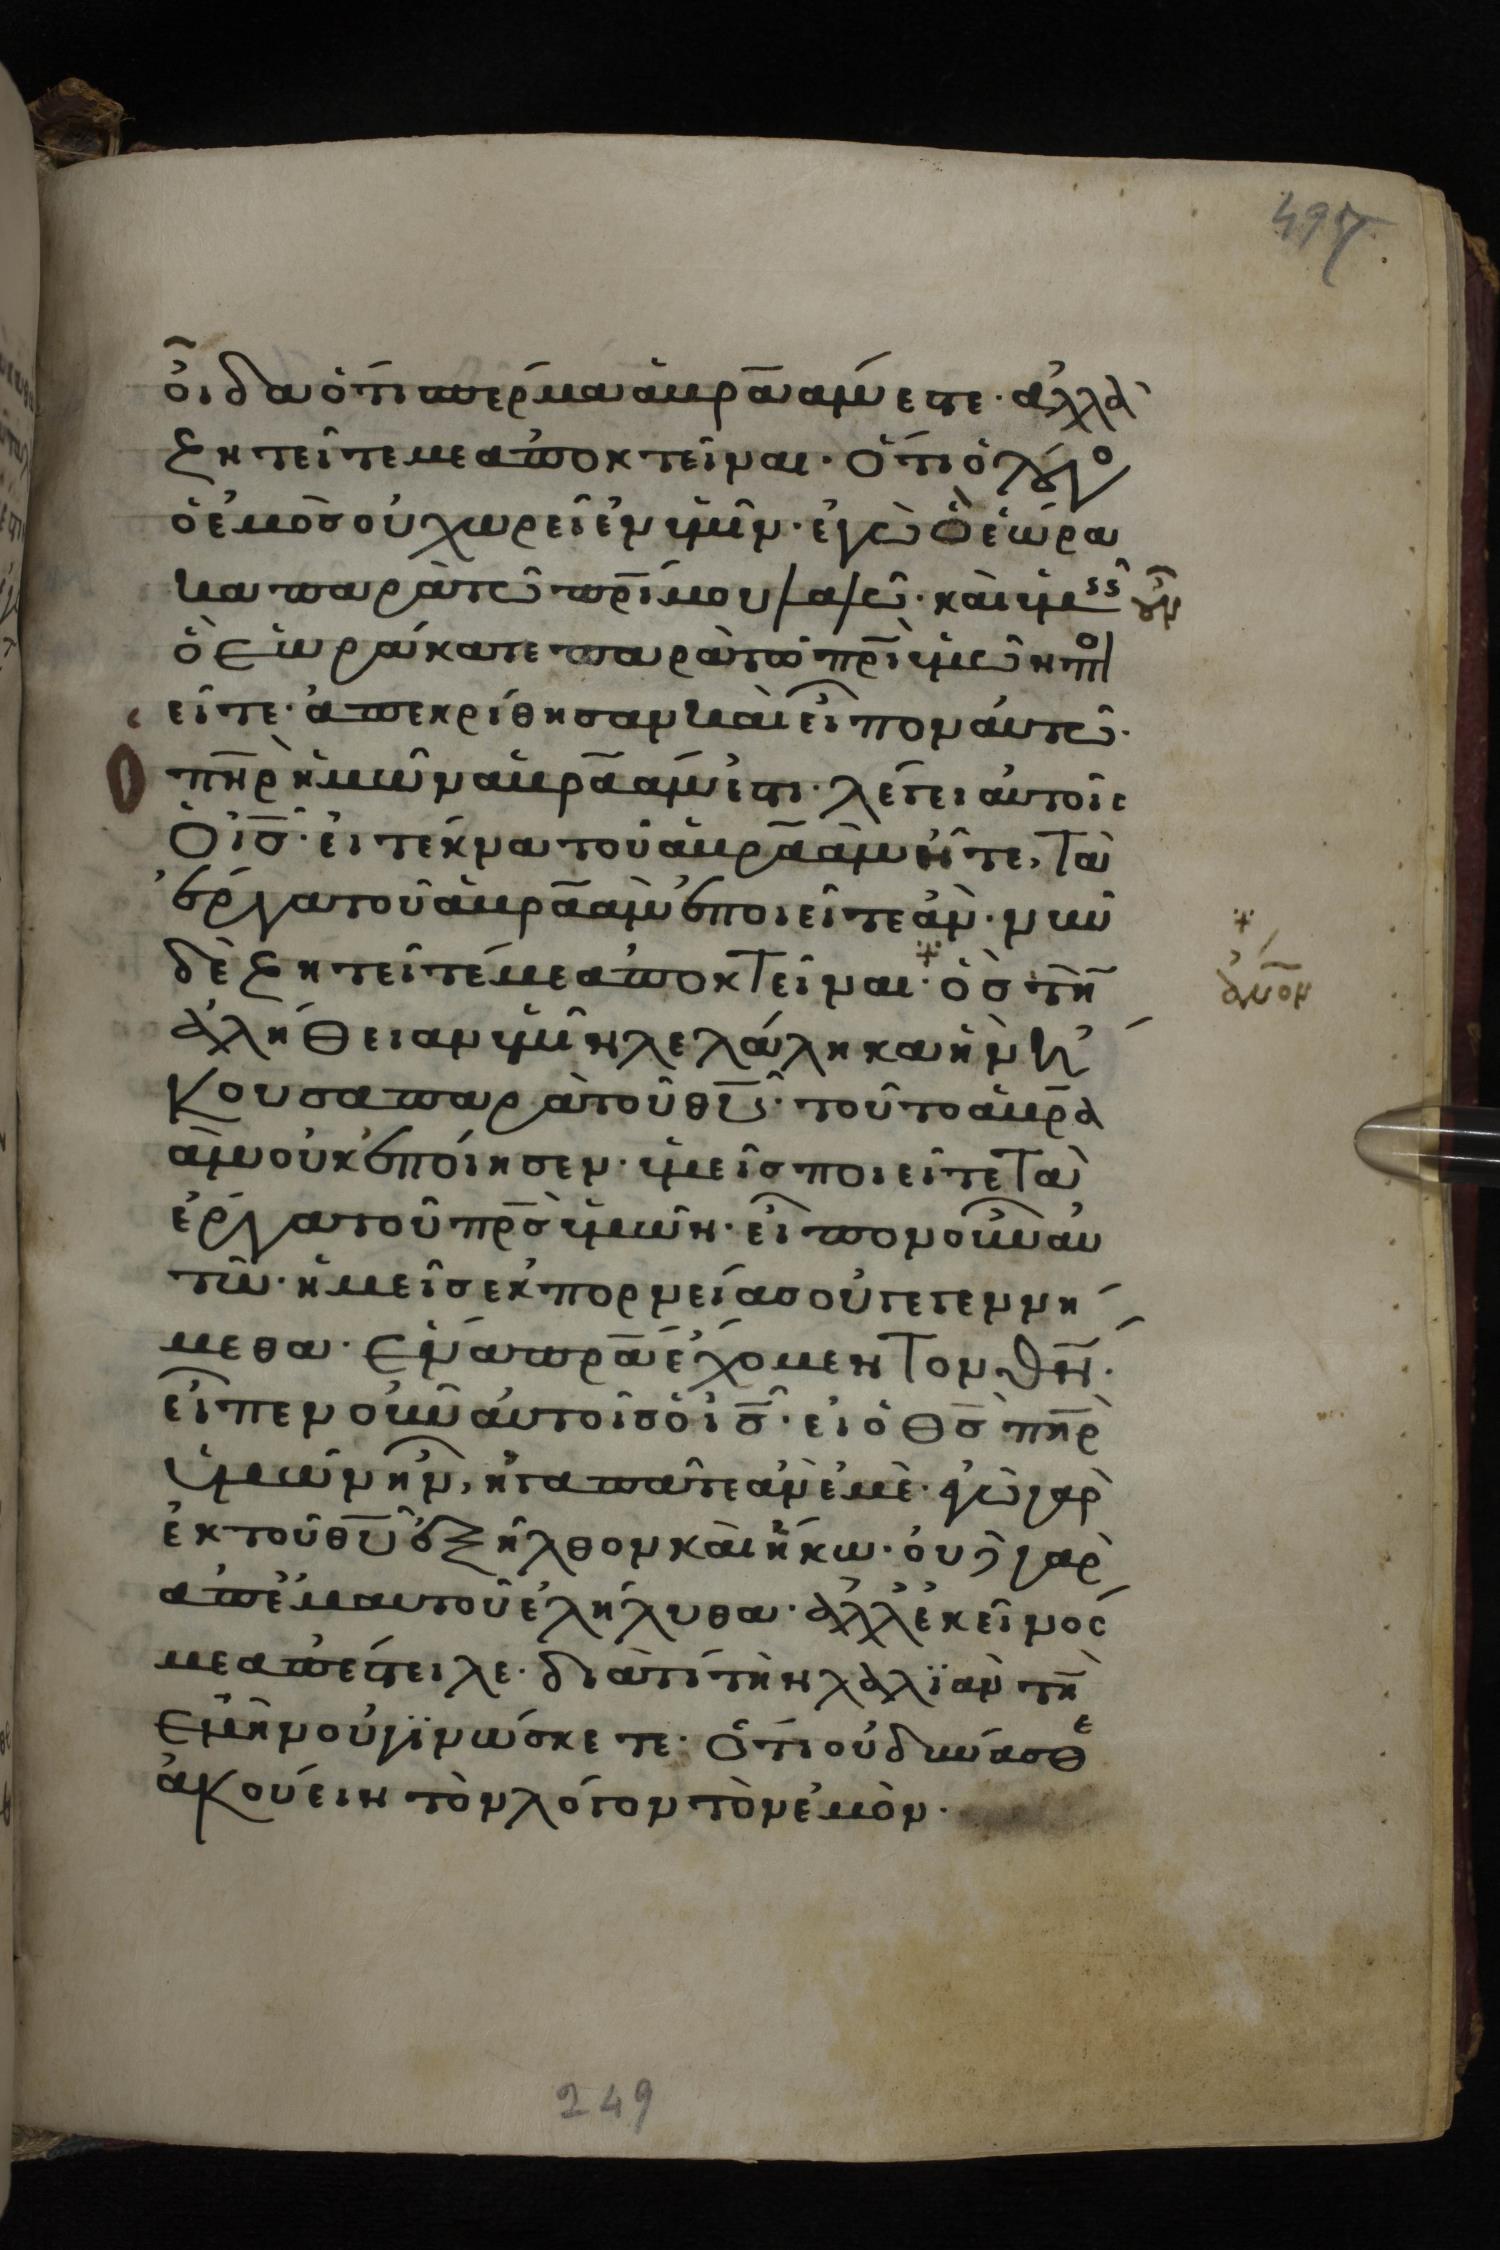 497
οἶδα ὅτι σπέρμα ἀβραάμ ἐστε· ἀλλὰ
ζητεῖτέ με ἀποκτεῖναι· ὅτι ὁ λόγο
ὁ ἐμὸσ οὐ χωρεῖ ἐν ὑμῖν· ἐγὼ ὃ ἑώρα
κα παρὰ τῶ πρί μου λαλῶ· καὶ ὑμεῖς οὖν
ὃ ἑωράκατε παρὰ τῶ πρὶ ὑμῶν ποι
εῖτε· ἀπεκρίθησαν καὶ εἶπον αὐτῶ·
πηρ ἡμῶν ἀβραάμ ἐστι· λέγει αὐτοῖς
ὁ ισ· εἰ τέκνα τοῦ ἀβραὰμ ἦτε, τὰ
ἔργα τοῦ ἀβραὰμ ἐποιεῖτε ἄν· νῦν
δὲ ζητεῖτέ με ἀποκτεῖναι· ὃσ τὴν
ἀλήθειαν ὑμῖν λελάληκα ἣν ἤ
κουσα παρὰ τοῦ θυ· τοῦτο ἀβρα
ὰμ οὐκ ἐποίησεν· ὑμεῖσ ποιεῖτε τὰ
ἔργα τοῦ πρσ ὑμῶν· εἶπον οὖν αὐ
τῶ· ἡμεῖσ ἐκ πορνείασ οὐ γεγεννή
μεθα· ἕνα πρα ἔχομεν τον θν·
εἶπεν οὖν αὐτοῖσ ὁ ισ· εἰ ὁ θσ πηρ
ὑμῶν ἦν, ἠγαπᾶτε ἂν ἐμὲ· ἐγὼ γὰρ
ἐκ τοῦ θυ ἐξῆλθον καὶ ἥκω· οὐδὲ γὰρ
ἀπ' ἐμαυτοῦ ἐλήλυθα· ἀλλ' ἐκεῖνός
με ἀπέστειλε· διὰτί τὴν λαλϊὰν τὴν
ἐμὴν οὐ γϊνώσκετε· ὅτι οὐ δύνασθε
ἀκούειν τὸν λόγον τὸν ἐμόν·
ἄνον
249